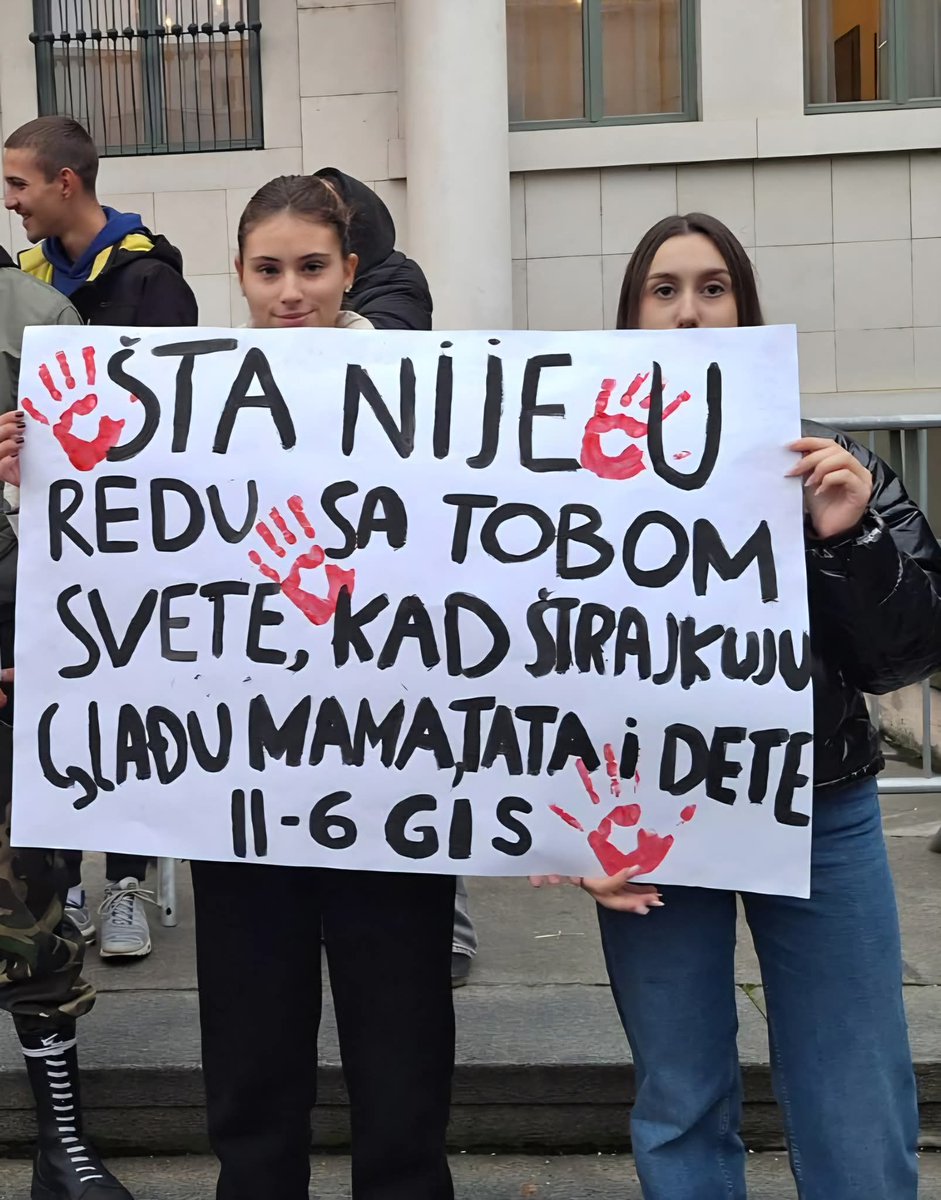 ŠTA NIJE U
REDU SA TOBOM
SVETE, KAD ŠTRAJKUJU
GLAĐU MAMA, TATA i DETE
II-6 GIS